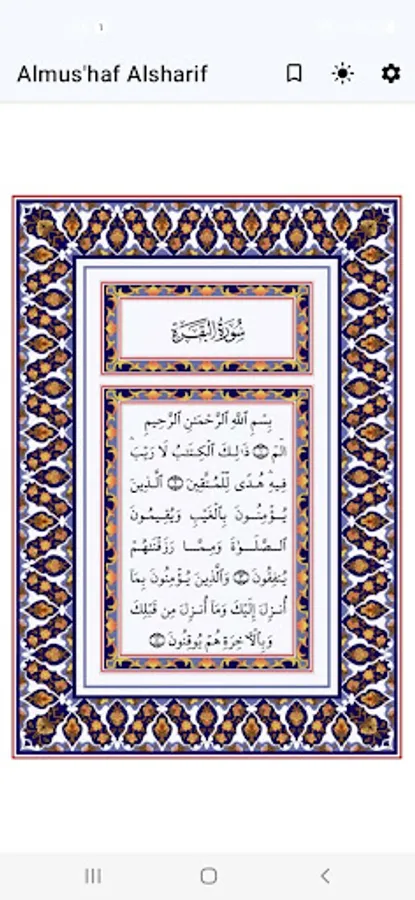 1
Almus'haf Alsharif
سُورَةُ البَقَرَةِ
بِسْمِ ٱللَّهِ ٱلرَّحْمَٰنِ ٱلرَّحِيمِ
الٓمٓ ۝ ذَٰلِكَ ٱلْكِتَٰبُ لَا رَيْبَ ۛ
فِيهِ ۛ هُدًى لِّلْمُتَّقِينَ ۝ ٱلَّذِينَ
يُؤْمِنُونَ بِٱلْغَيْبِ وَيُقِيمُونَ
ٱلصَّلَوٰةَ وَمِمَّا رَزَقْنَٰهُمْ
يُنفِقُونَ ۝ وَٱلَّذِينَ يُؤْمِنُونَ بِمَآ
أُنزِلَ إِلَيْكَ وَمَآ أُنزِلَ مِن قَبْلِكَ
وَبِٱلْءَاخِرَةِ هُمْ يُوقِنُونَ ۝